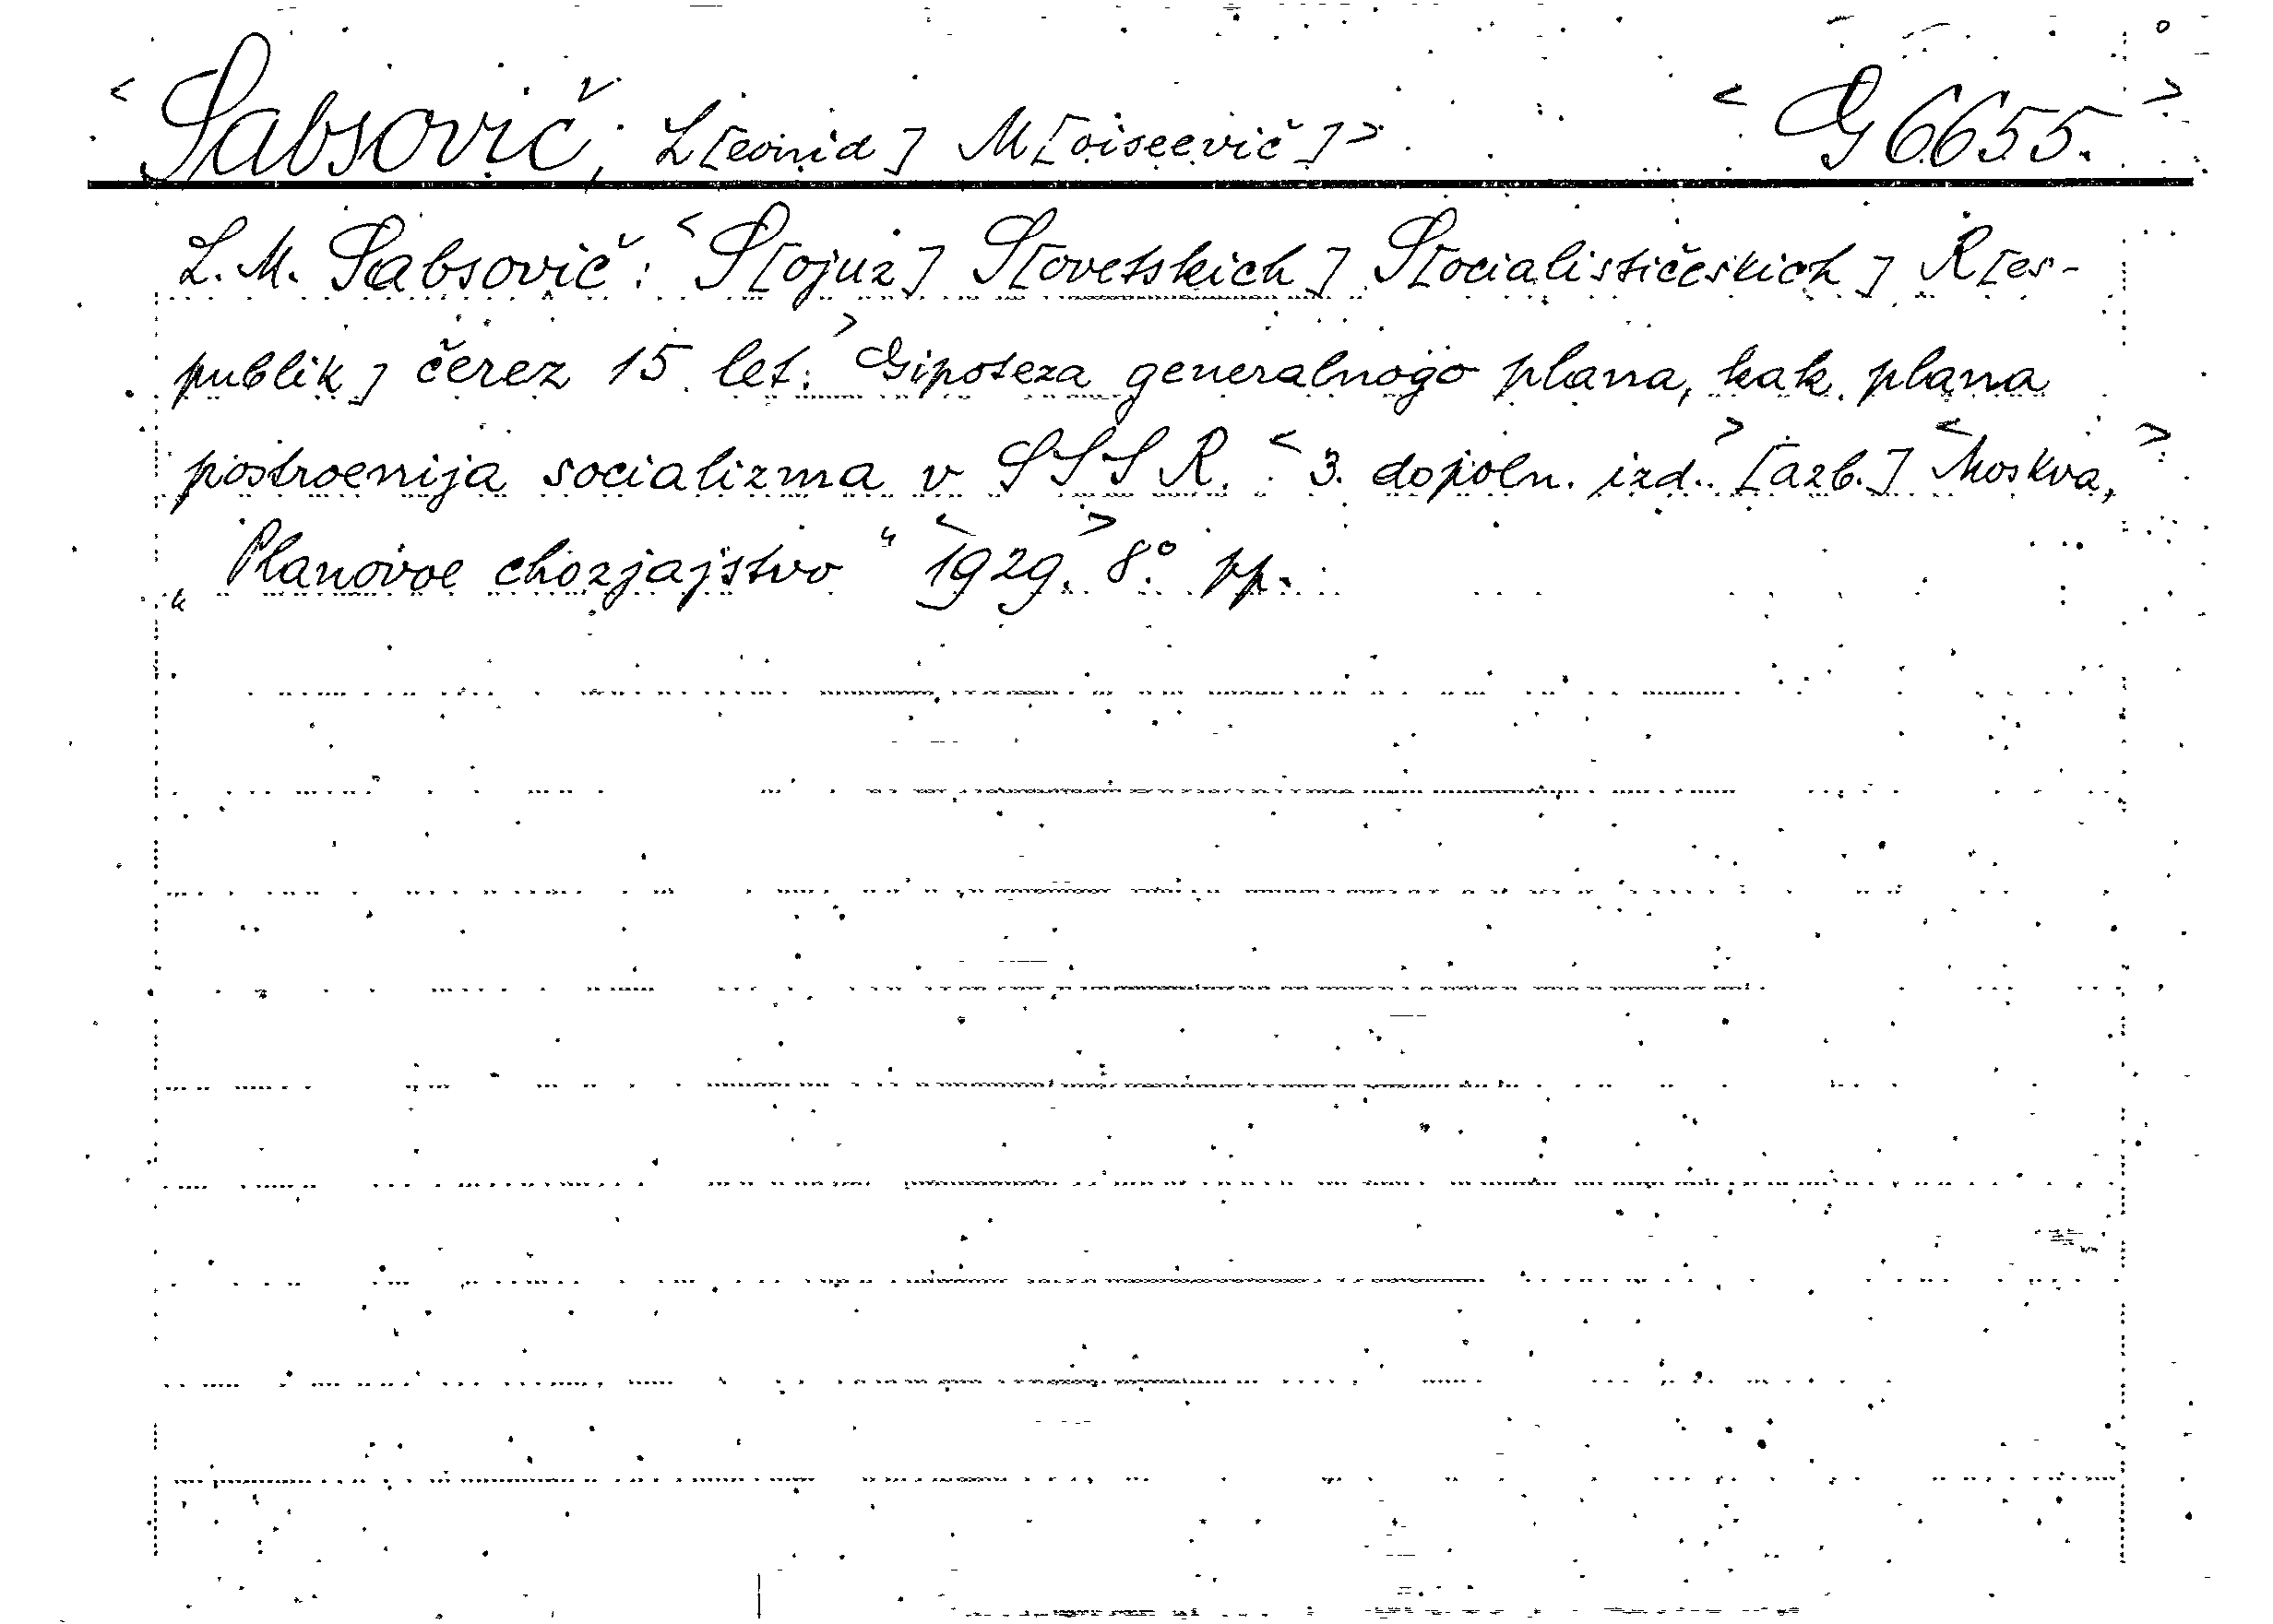 <Sabsovič, L[eonid] M[oiseevič]> <G 6655.>
L. M. Sabsovič: <S[ojuz] S[ovetskich] S[ocialističeskich] R[es-
publik] čerez 15 let:> Gipoteza generalnogo plana, kak plana
postroenija socializma v SSSR. <3. dopoln. izd.> [azb.] <Moskva,>
„Planovoe chozjajstvo“ <1929.> 8° pp.